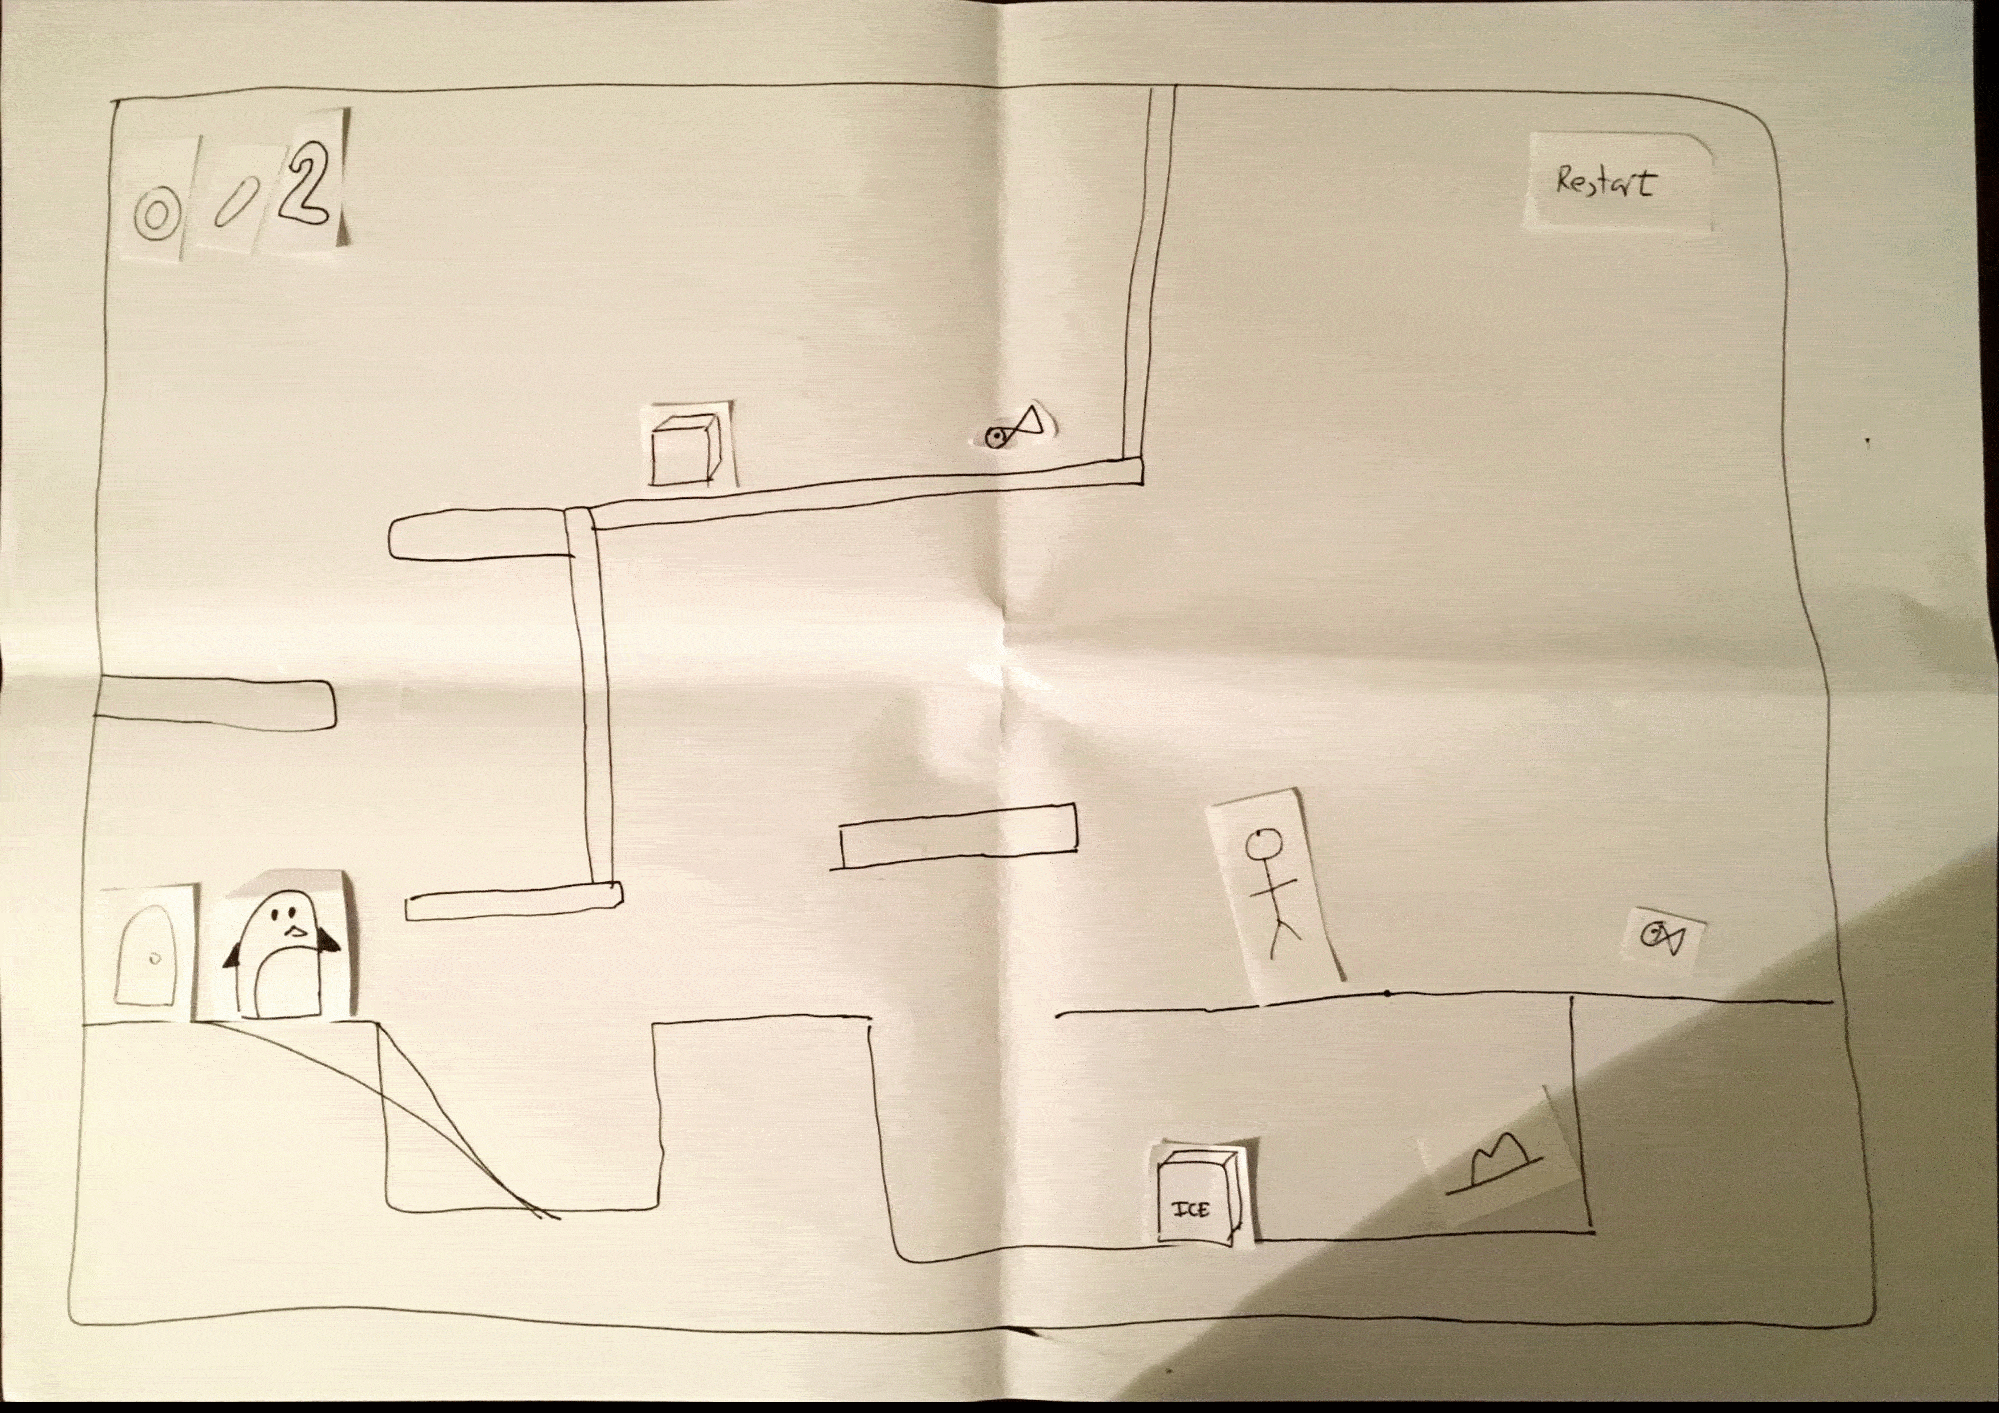 0/2
Restart
ICE